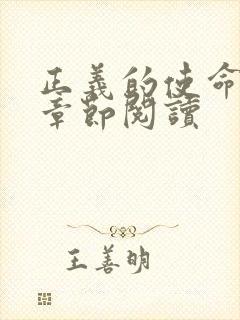 正義的使命
章節閱讀
王善明